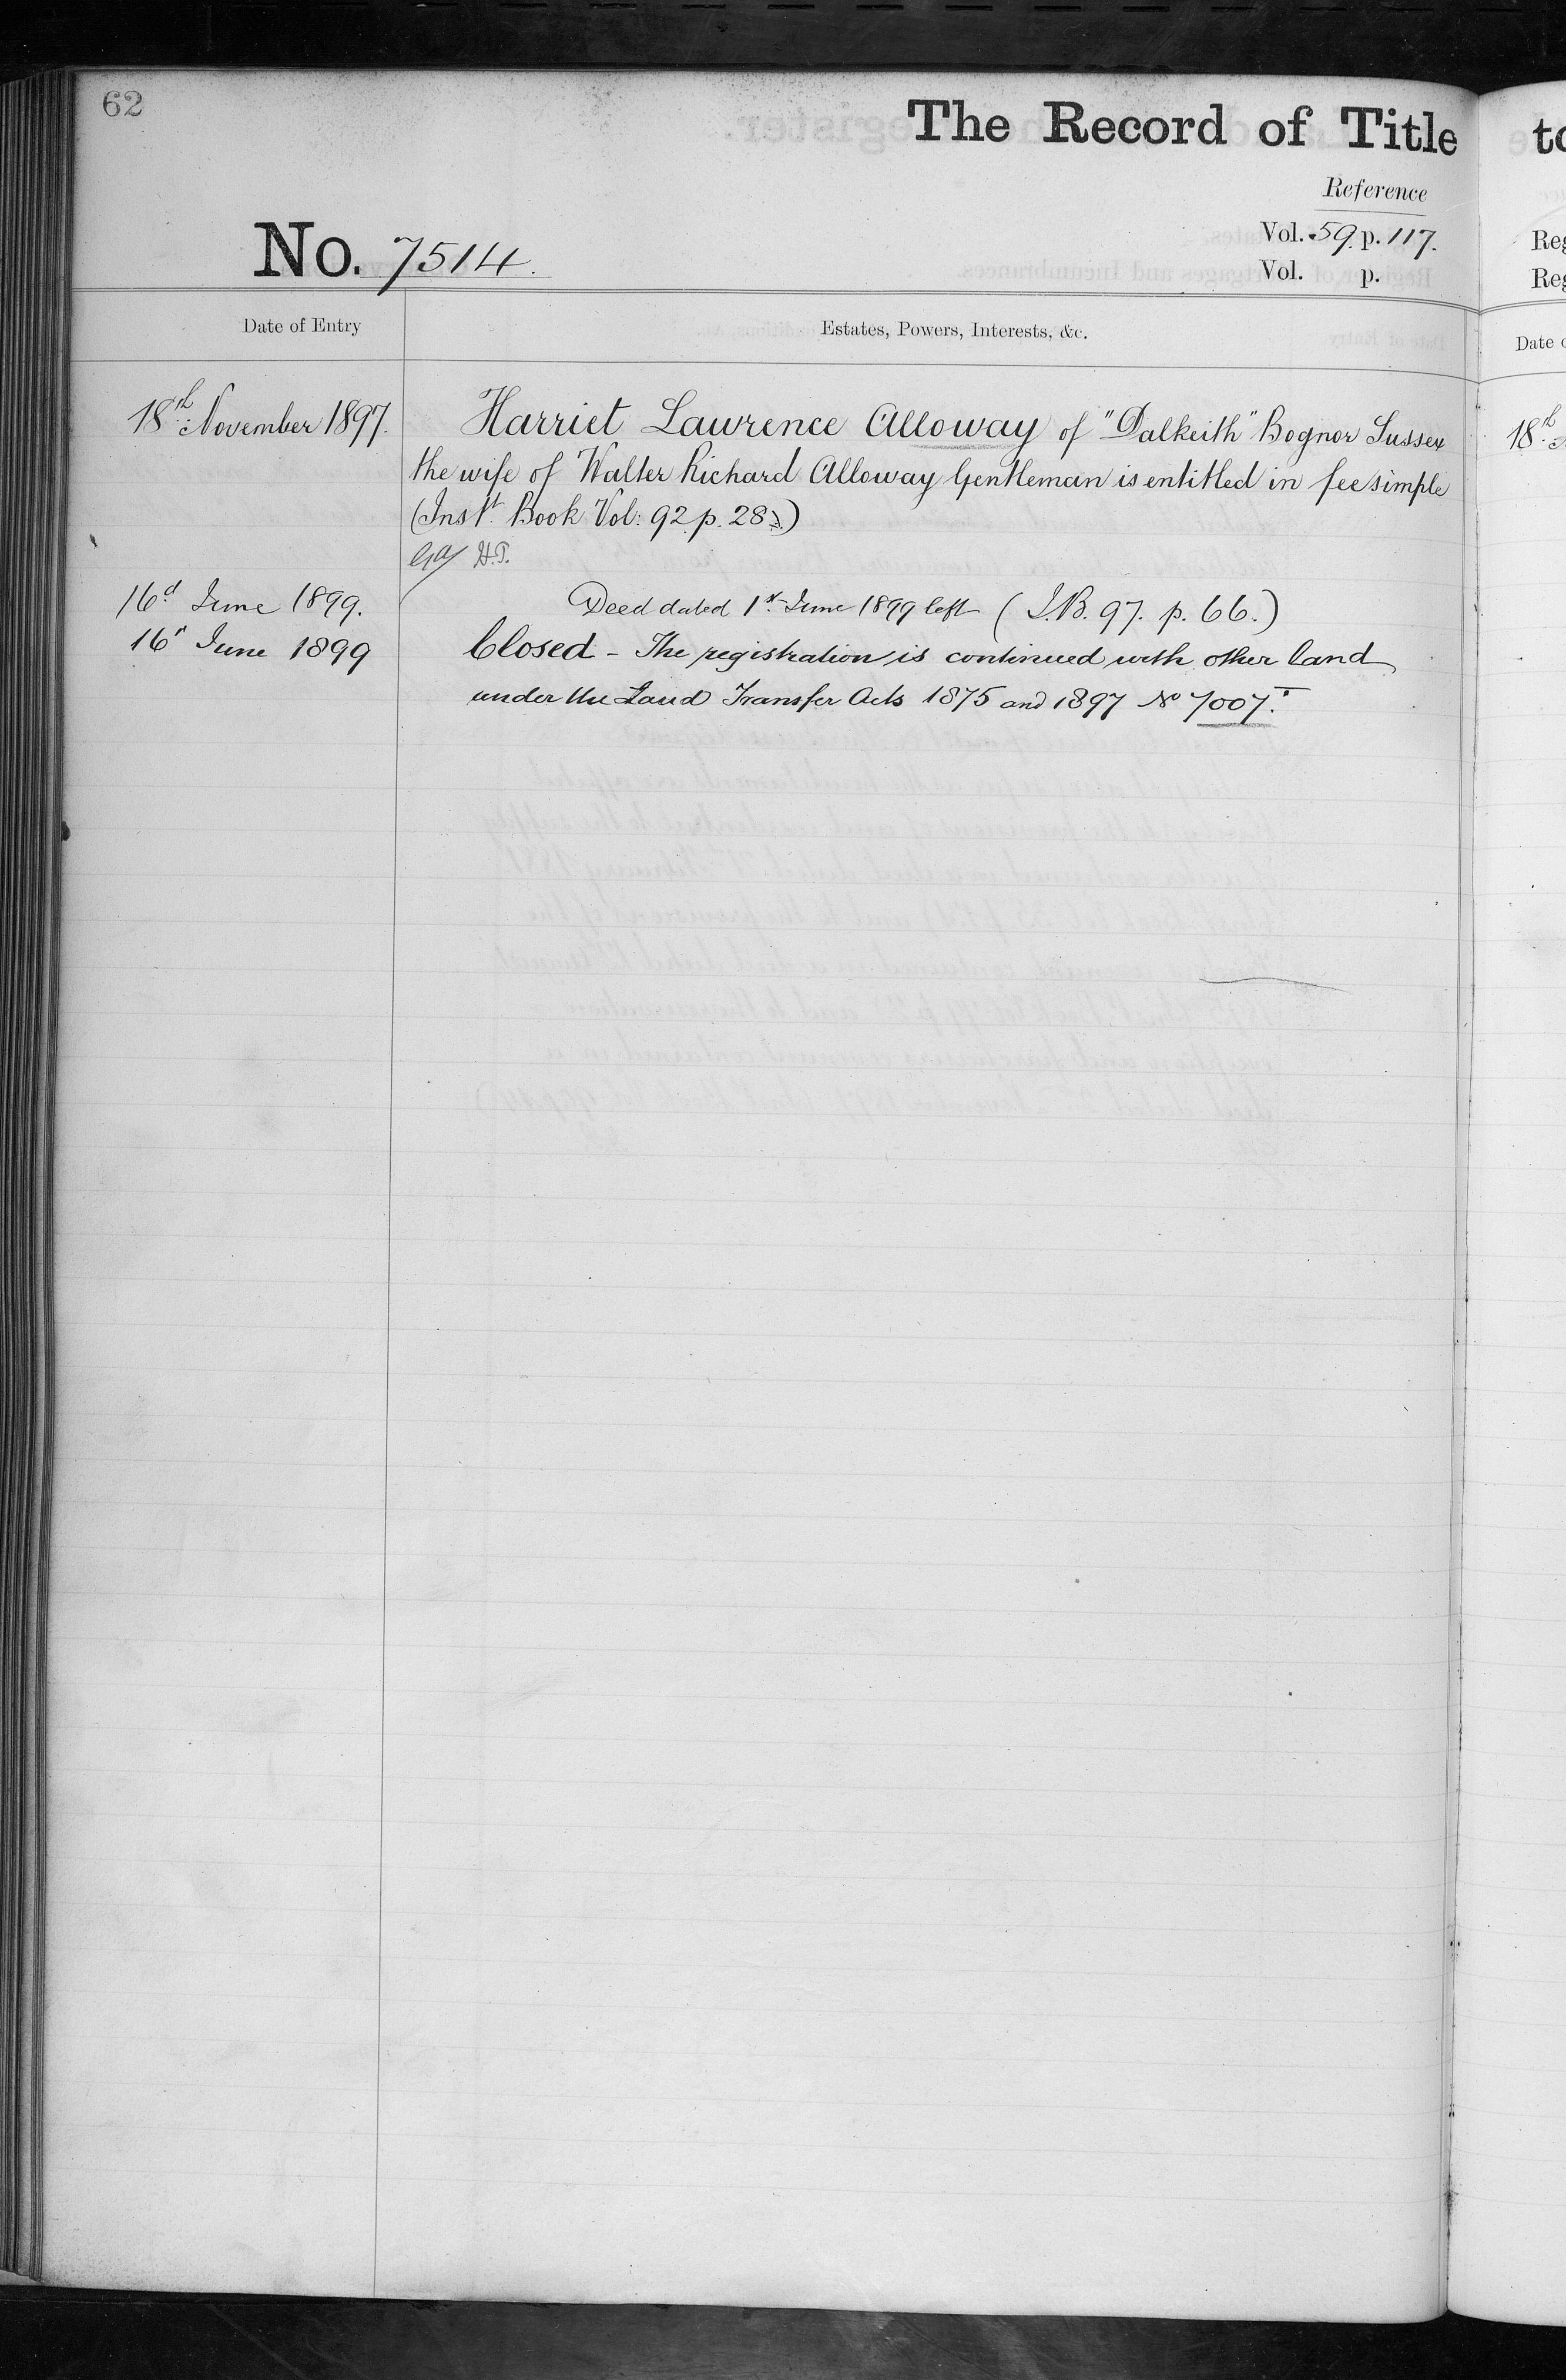 62
The Record of Title to
Reference
No. 7514.
Vol. 59. p. 117.
Vol. p.
Reg
Reg
Date of Entry
Estates, Powers, Interests, &c.
Date o
18th November 1897.
Harriet Lawrence Alloway of "Dalkeith" Bognor Sussex
18th
the wife of Walter Richard Alloway Gentleman is entitled in fee simple
(Inst. Book Vol: 92 p. 28)
H.T.
16th June 1899.
Deed dated 1st June 1899 left (I.B. 97. p. 66.)
16th June 1899
Closed - The registration is continued with other land
under the Land Transfer Acts 1875 and 1897 No 7007.